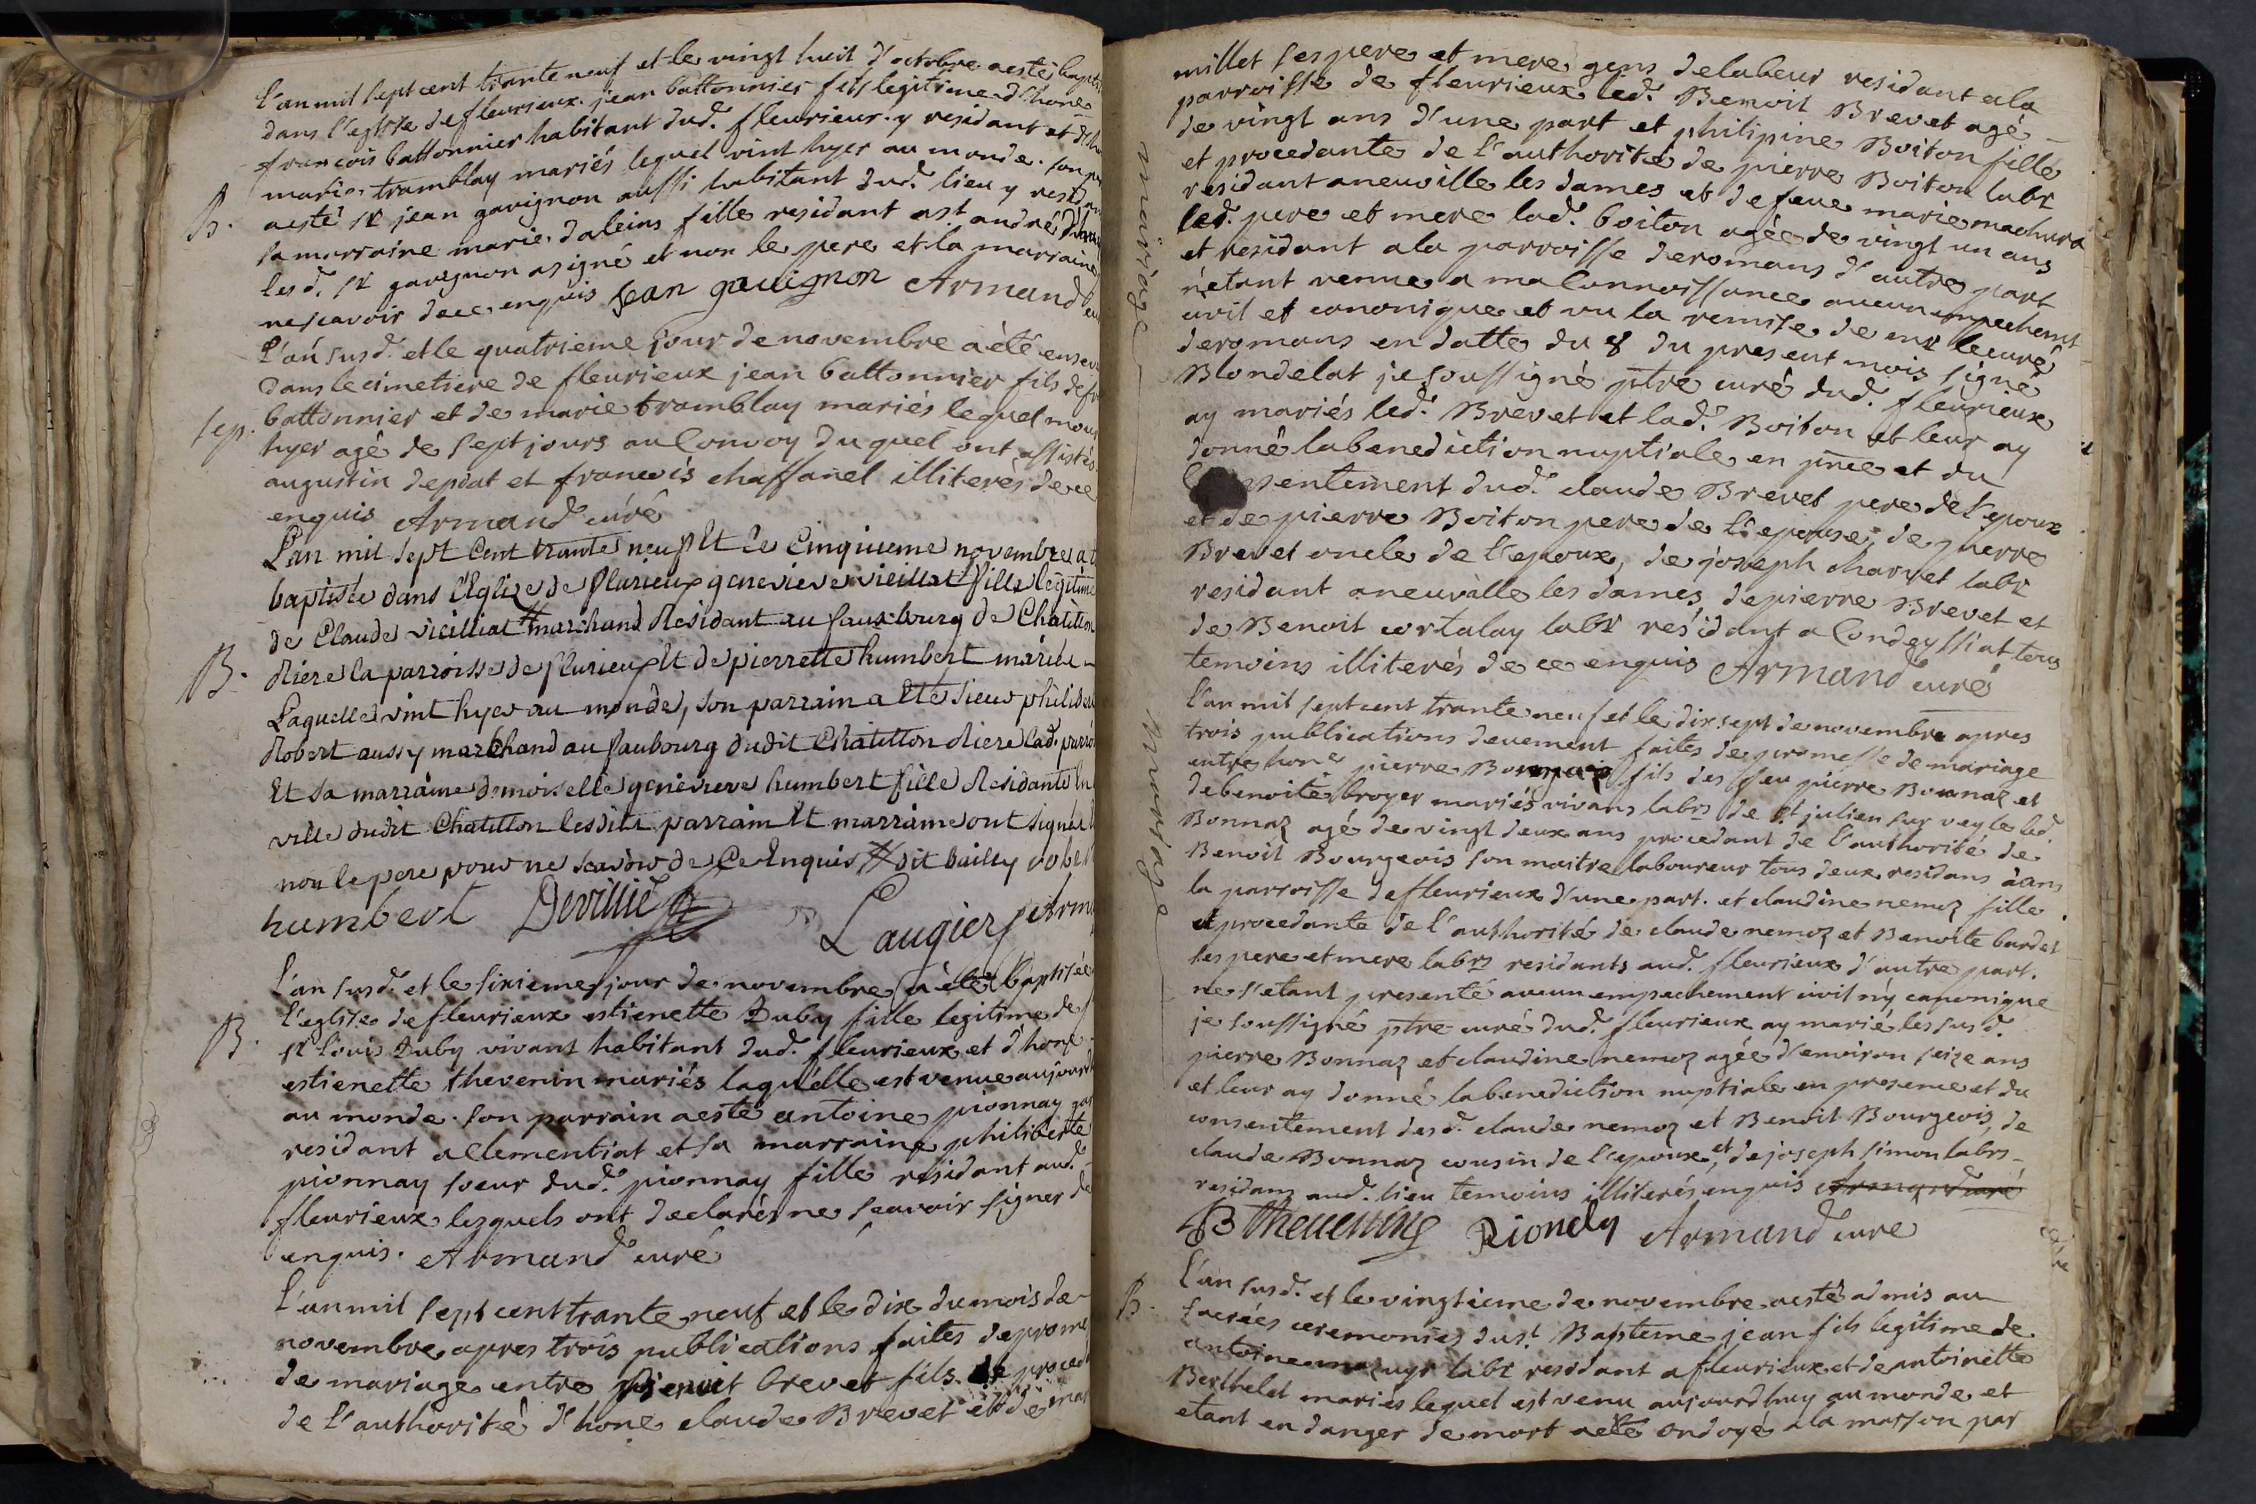 l'an mil sept cent trante neuf et le vingt huit d'octobre a esté bapt
dans l'eglise de fleurieux jean battonnier fils legitime d'hone
francois battonnier habitant dud. fleurieux y residant et d'ho
marie tramblay mariés lequel vint hyer au monde. son
B. a esté sr jean gavignon aussi habitant dud. lieu y resid
sa marraine marie daleins fille residant a st andré
lesd. sr gavignon a signé et non le pere et la marraine
ne scavoir de ce enquis jean gauignon Armand cu
l'an susd. et le quatrieme jour de novembre a èté enseve
dans le cimetiere de fleurieux jean battonnier fils de fr
sep. battonnier et de marie tramblay mariés lequel mour
hyer agé de sept jours au Convoy du quel ont assistés
augustin deplat et francois chaffanel illiterés de ce
enquis Armand curé
L'an mil sept Cent trante neuf Et le Cinquieme novembre a
baptisée dans l'Eglize de flurieux genevieve vieilliat fille legitime
de Claude vieilliat # marchand Residant au faux bourg de Chatitton
B. Riere la parroisse de flurieux Et de pierrette humbert mariés
Laquelle vint hyer au monde, son parrain a Eté sieur philib
Robert aussy marchand au faubourg dudit Chatitton Riere lad. parroi
Et sa marraine demoiselle genevieve humbert fille Residante En
ville dudit Chatitton lesdits parrain Et marraine ont signés
non le pere pour ne scavoir de Ce Enquis # dit bailly robert
humbert Devillie Laugier Arm
l'an susd. et le sixieme jour de novembre a èté baptisée
l'eglise de fleurieux estienette Duby fille legitime de
B. sr Louis Duby vivant habitant dud. fleurieux et d'hone
estienette thevenin mariés laquelle est venue aujourd
au monde. son parrain a esté antoine pionnay
residant a Clementiat et sa marraine philiberte
pionnay soeur dud. pionnay fille residant aud.
fleurieux lezquels ont declarés ne scavoir signer de
enquis. Armand curé
l'an mil sept cent trante neuf et le dix du mois de
novembre apres trois publications faites de prome
de mariage entre Benoit brevet fils et proced
de l'authorité d'hone claude Brevet et de
millet ses pere et mere gens de labeur residant a la
parroisse de fleurieux led. Benoit Brevet agé
de vingt ans d'une part et philipine Boiton fille
et procedante de l'authorité de pierre Boiton labr
residant a neuville les dames et de feue marie machura
led. pere et mere lad. boiton agée de vingt un ans
mariage et residant a la parroisse de romans d'autre part
n'etant venue a ma Connoissance aucun empechemt
civil et canonique et vu la remise de mr le curé
de romans en datte du 8 du present mois signé
Blondelat je soussigné ptre curé dud. fleurieux
ay mariés led. Brevet et lad. Boiton et leur ay
donné la benediction nuptiale en pnce et du
sentement dud. claude Brevet pere de l'epoux
et de pierre Boiton pere de l'epouse, de pierre
Brevet oncle de l'epoux, de joseph charvet labr
residant a neuville les dames, de pierre Brevet et
de Benoit cortalay labr residant a Condeyssiat tous
temoins illiterés de ce enquis Armand curé
l'an mil sept cent trante neuf et le dix sept de novembre apres
trois publications deuement faites de promesse de mariage
entre hone pierre Bonnaz fils des feu pierre Bonnaz et
mariage de benoite broyer mariés vivans labrs de st julien sur veyle led.
Bonnaz agé de vingt deux ans procedant de l'authorité de
Benoit Bourgeois son maitre laboureur tous deux residans dans
la parroisse de fleurieux d'une part. et claudine nemoz fille
et procedante de l'authorité de claude nemoz et Benoite burdet
ses pere et mere labrs residants aud. fleurieux d'autre part.
ne s'etant presenté aucun empechement civil n'y canonique
je soussigné ptre curé dud. fleurieux ay marié les susd.
pierre Bonnaz et claudine nemoz agée d'environ seize ans
et leur ay donné la benediction nuptiale en presence et du
consentement desd. claude nemoz et Benoit Bourgeois, de
claude Bonnaz cousin de l'epoux, et de joseph simon labrs
residans aud. lieu temoins illiterés enquis Armand curé
Riondy Armand cure
B. l'an susd. et le vingtieme de novembre a esté admis au
sacrées ceremonies du st Bapteme jean fils legitime de
antoine labr residant a fleurieux et de antoinette
Berthelet mariés lequel est venu aujourdhuy au monde et
etant en danger de mort a eté ondoyé a la maison par